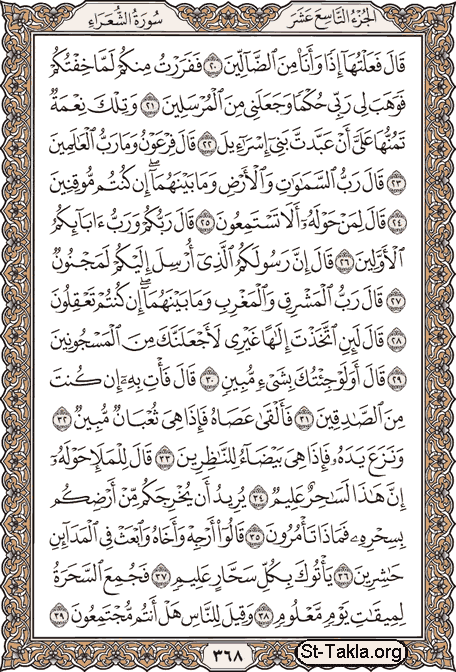 سُورَةُ الشُّعَرَاءِ الجُزْءُ التَّاسِعَ عَشَرَ
قَالَ فَعَلْتُهَآ إِذًا وَأَنَا۠ مِنَ ٱلضَّآلِّينَ ٢٠ فَفَرَرْتُ مِنكُمْ لَمَّا خِفْتُكُمْ
فَوَهَبَ لِى رَبِّى حُكْمًا وَجَعَلَنِى مِنَ ٱلْمُرْسَلِينَ ٢١ وَتِلْكَ نِعْمَةٌ
تَمُنُّهَا عَلَىَّ أَنْ عَبَّدتَّ بَنِىٓ إِسْرَٰٓءِيلَ ٢٢ قَالَ فِرْعَوْنُ وَمَا رَبُّ ٱلْعَٰلَمِينَ
٢٣ قَالَ رَبُّ ٱلسَّمَٰوَٰتِ وَٱلْأَرْضِ وَمَا بَيْنَهُمَآ ۖ إِن كُنتُم مُّوقِنِينَ
٢٤ قَالَ لِمَنْ حَوْلَهُۥٓ أَلَا تَسْتَمِعُونَ ٢٥ قَالَ رَبُّكُمْ وَرَبُّ ءَابَآئِكُمُ
ٱلْأَوَّلِينَ ٢٦ قَالَ إِنَّ رَسُولَكُمُ ٱلَّذِىٓ أُرْسِلَ إِلَيْكُمْ لَمَجْنُونٌ
٢٧ قَالَ رَبُّ ٱلْمَشْرِقِ وَٱلْمَغْرِبِ وَمَا بَيْنَهُمَآ ۖ إِن كُنتُمْ تَعْقِلُونَ
٢٨ قَالَ لَئِنِ ٱتَّخَذْتَ إِلَٰهًا غَيْرِى لَأَجْعَلَنَّكَ مِنَ ٱلْمَسْجُونِينَ
٢٩ قَالَ أَوَلَوْ جِئْتُكَ بِشَىْءٍ مُّبِينٍ ٣٠ قَالَ فَأْتِ بِهِۦٓ إِن كُنتَ
مِنَ ٱلصَّٰدِقِينَ ٣١ فَأَلْقَىٰ عَصَاهُ فَإِذَا هِىَ ثُعْبَانٌ مُّبِينٌ ٣٢
وَنَزَعَ يَدَهُۥ فَإِذَا هِىَ بَيْضَآءُ لِلنَّٰظِرِينَ ٣٣ قَالَ لِلْمَلَإِ حَوْلَهُۥٓ
إِنَّ هَٰذَا لَسَٰحِرٌ عَلِيمٌ ٣٤ يُرِيدُ أَن يُخْرِجَكُم مِّنْ أَرْضِكُم
بِسِحْرِهِۦ فَمَاذَا تَأْمُرُونَ ٣٥ قَالُوٓا۟ أَرْجِهْ وَأَخَاهُ وَٱبْعَثْ فِى ٱلْمَدَآئِنِ
حَٰشِرِينَ ٣٦ يَأْتُوكَ بِكُلِّ سَحَّارٍ عَلِيمٍ ٣٧ فَجُمِعَ ٱلسَّحَرَةُ
لِمِيقَٰتِ يَوْمٍ مَّعْلُومٍ ٣٨ وَقِيلَ لِلنَّاسِ هَلْ أَنتُم مُّجْتَمِعُونَ ٣٩
٣٦٨
St-Takla.org